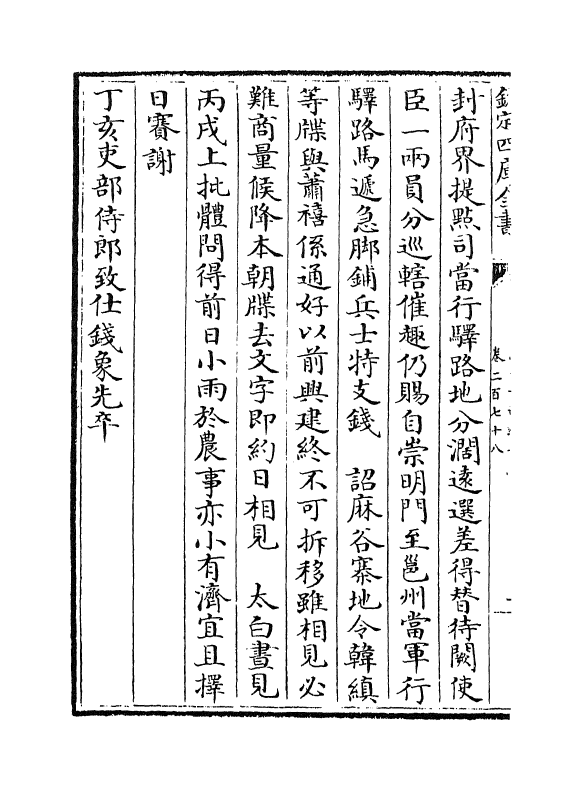 欽定四庫全書
卷二百七十八
封府界提㸃司當行驛路地分濶遠選差得替待闕使
臣一兩員分巡轄催趣仍賜自崇明門至邕州當軍行
驛路馬遞急脚鋪兵士特支錢　詔麻谷寨地令韓縝
等牒與蕭禧係通好以前興建終不可拆移雖相見必
難商量候降本朝牒去文字即約日相見　太白晝見
丙戌上批體問得前日小雨於農事亦小有濟宜且擇
日賽謝
丁亥吏部侍郎致仕錢象先卒